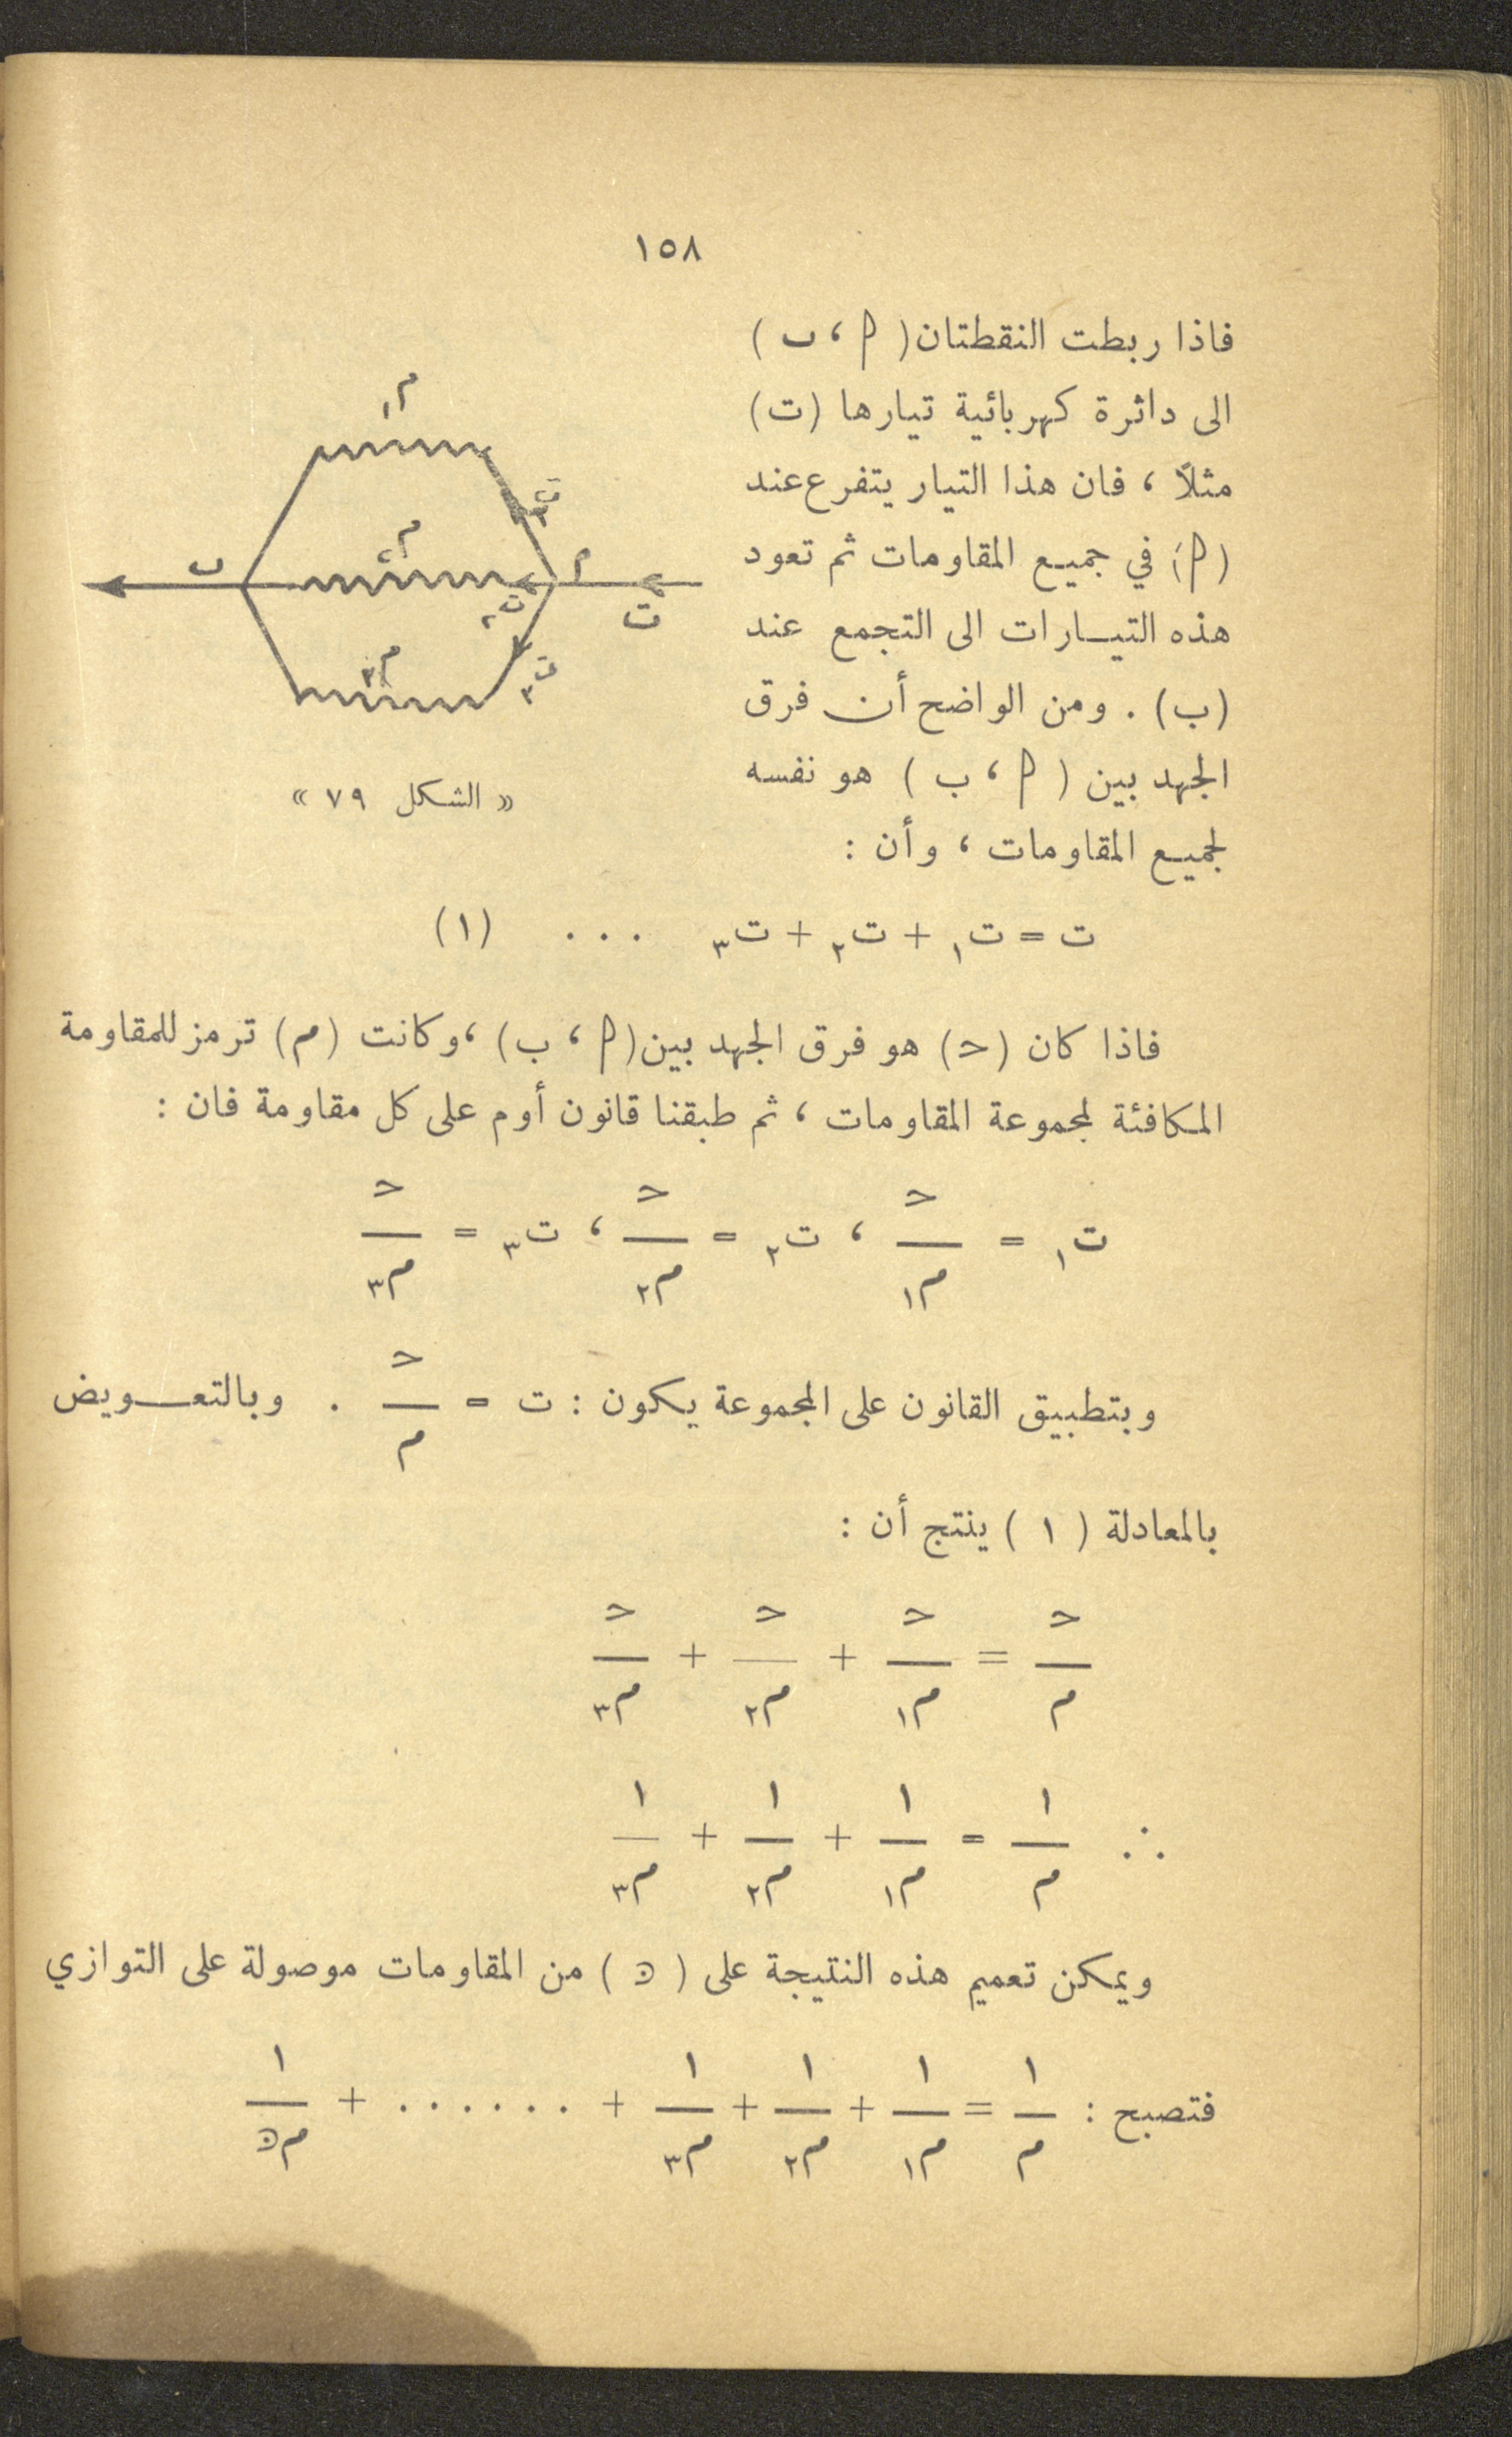 ١٥٨
فاذا ربطت النقطتان ( م ، ب )
الى دائرة كهربائية تيارها (ت)
مثلاً ، فان هذا التيار يتفرع عند
(م) في جميع المقاومات ثم تعود
هذه التيارات الى التجمع عند
(ب) . ومن الواضح أن فرق
الجهد بين ( م ، ب ) هو نفسه
لجميع المقاومات ، وأن :
م١
ت١
م٢
ب
م
ت٢
ت
م٣
ت٣
« الشكل ٧٩ »
ت = ت١ + ت٢ + ت٣ . . . (١)
فاذا كان (ح) هو فرق الجهد بين (م ، ب) ، وكانت (م) ترمز للمقاومة
المكافئة لمجموعة المقاومات ، ثم طبقنا قانون أوم على كل مقاومة فان :
ت١ = ح/م١ ، ت٢ = ح/م٢ ، ت٣ = ح/م٣
وبتطبيق القانون على المجموعة يكون : ت = ح/م . وبالتعويض
بالمعادلة ( ١ ) ينتج أن :
ح/م = ح/م١ + ح/م٢ + ح/م٣
∴ ١/م = ١/م١ + ١/م٢ + ١/م٣
ويمكن تعميم هذه النتيجة على ( ن ) من المقاومات موصولة على التوازي
فتصبح : ١/م = ١/م١ + ١/م٢ + ١/م٣ + . . . . . . + ١/م ن